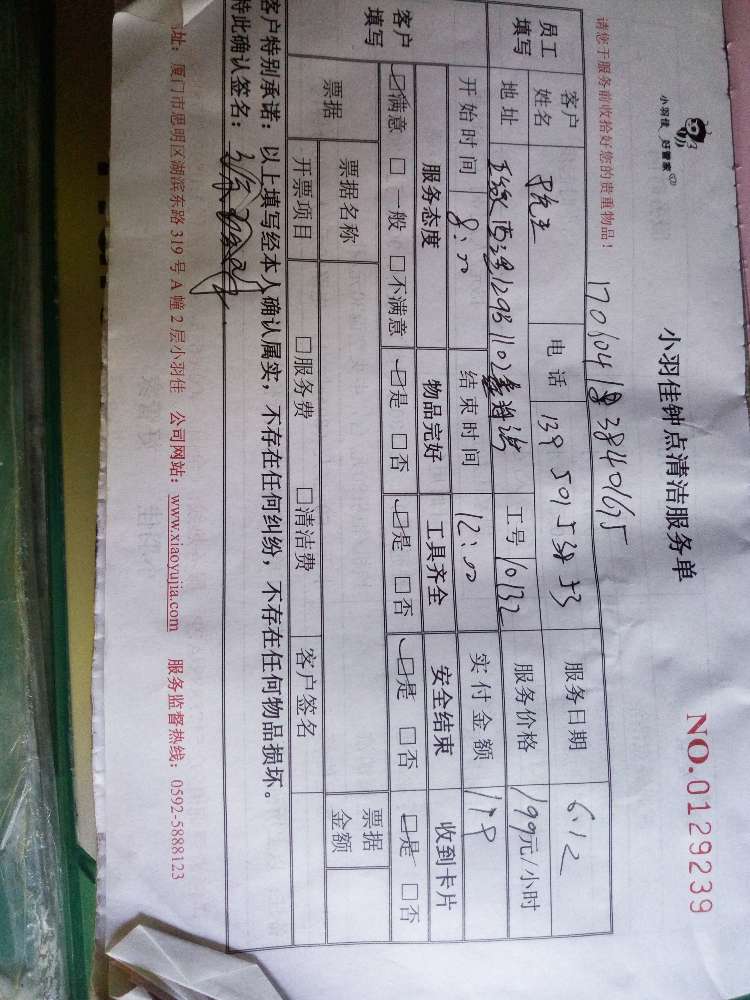 小羽佳 好管家
小羽佳钟点清洁服务单
NO.0129239
请您于服务前收拾好您的贵重物品!
员工填写
客户姓名
电话
服务日期 6.12
地址
工号 10132
服务价格 199元/小时
开始时间 8:00 结束时间 12:00 实付金额
客户填写
服务态度 物品完好 工具齐全 安全结束 收到卡片
☑满意 □一般 □不满意 ☑是 □否 ☑是 □否 ☑是 □否 ☑是 □否
票据 票据名称 票据金额
开票项目 □服务费 □清洁费 客户签名
客户特别承诺:以上填写经本人确认属实,不存在任何纠纷,不存在任何物品损坏。
特此确认签名:
地址:厦门市思明区湖滨东路 319 号 A 幢 2 层小羽佳 公司网站:www.xiaoyujia.com 服务监督热线:0592-5888123